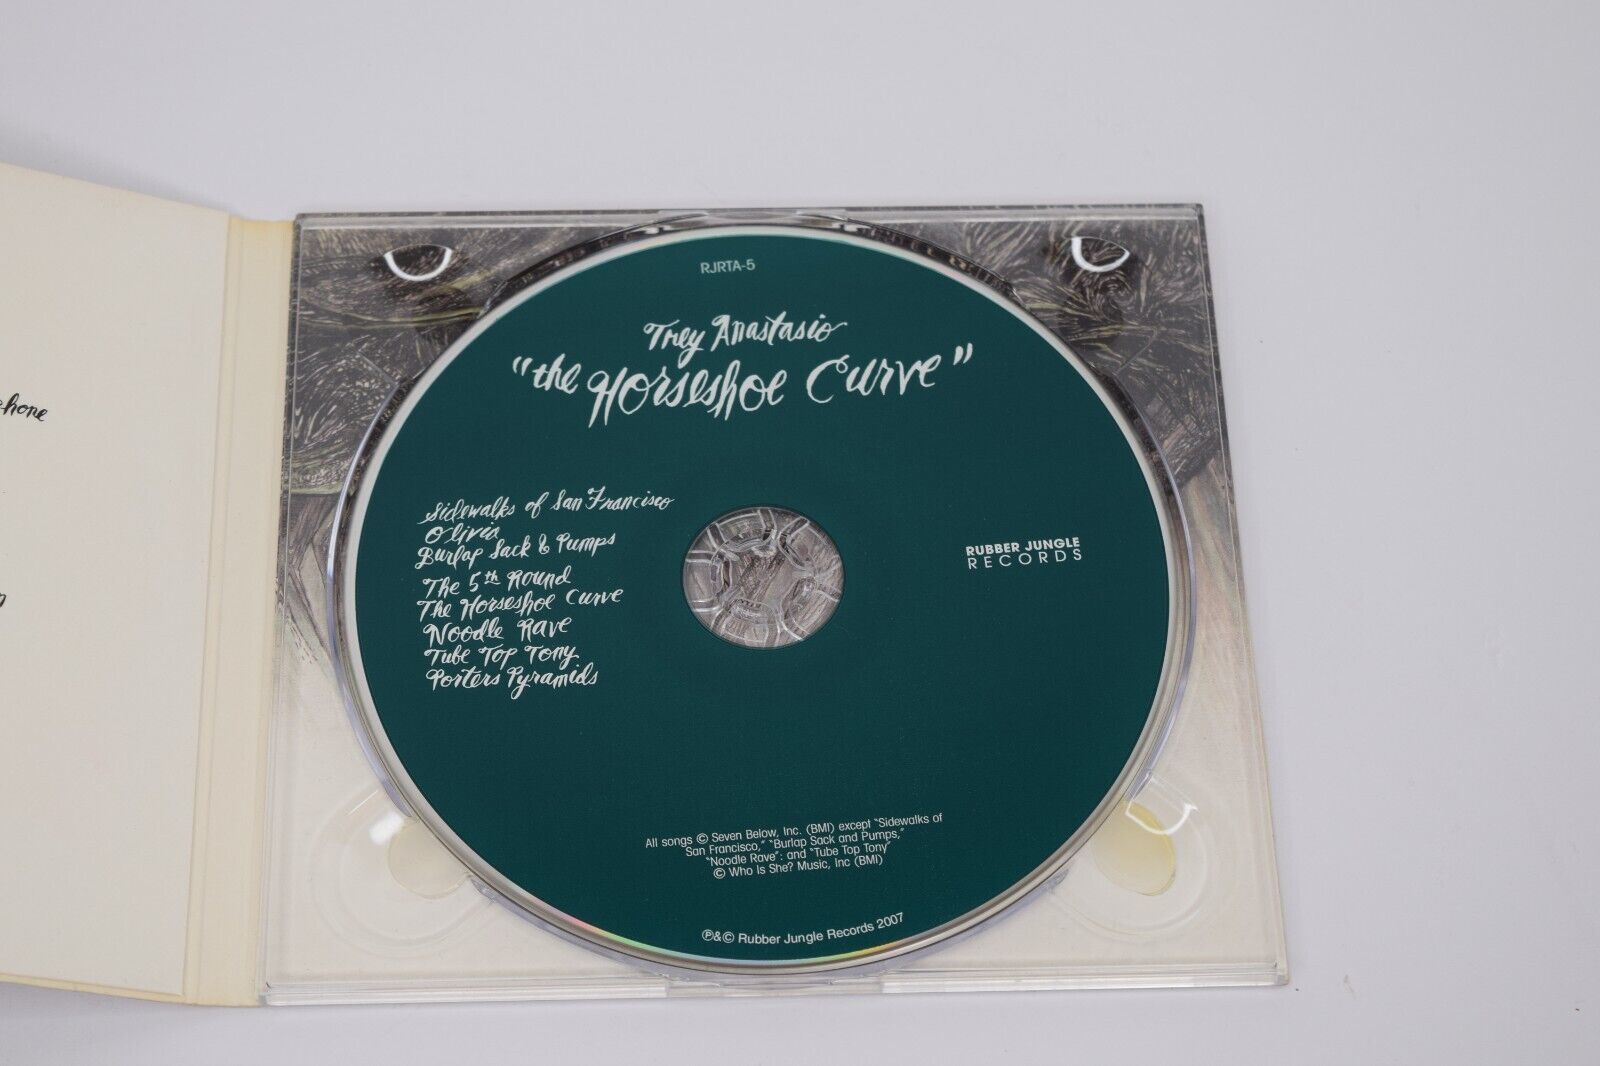 RJRTA-5
Trey Anastasio
"the Horseshoe Curve"
Sidewalks of San Francisco
Olivia
Burlap Sack & Pumps
The 5th Round
The Horseshoe Curve
Noodle Rave
Tube Top Tony
Porters Pyramids
RUBBER JUNGLE
RECORDS
All songs © Seven Below, Inc. (BMI) except "Sidewalks of
San Francisco," "Burlap Sack and Pumps,"
"Noodle Rave": and "Tube Top Tony"
© Who Is She? Music, Inc (BMI)
℗&© Rubber Jungle Records 2007